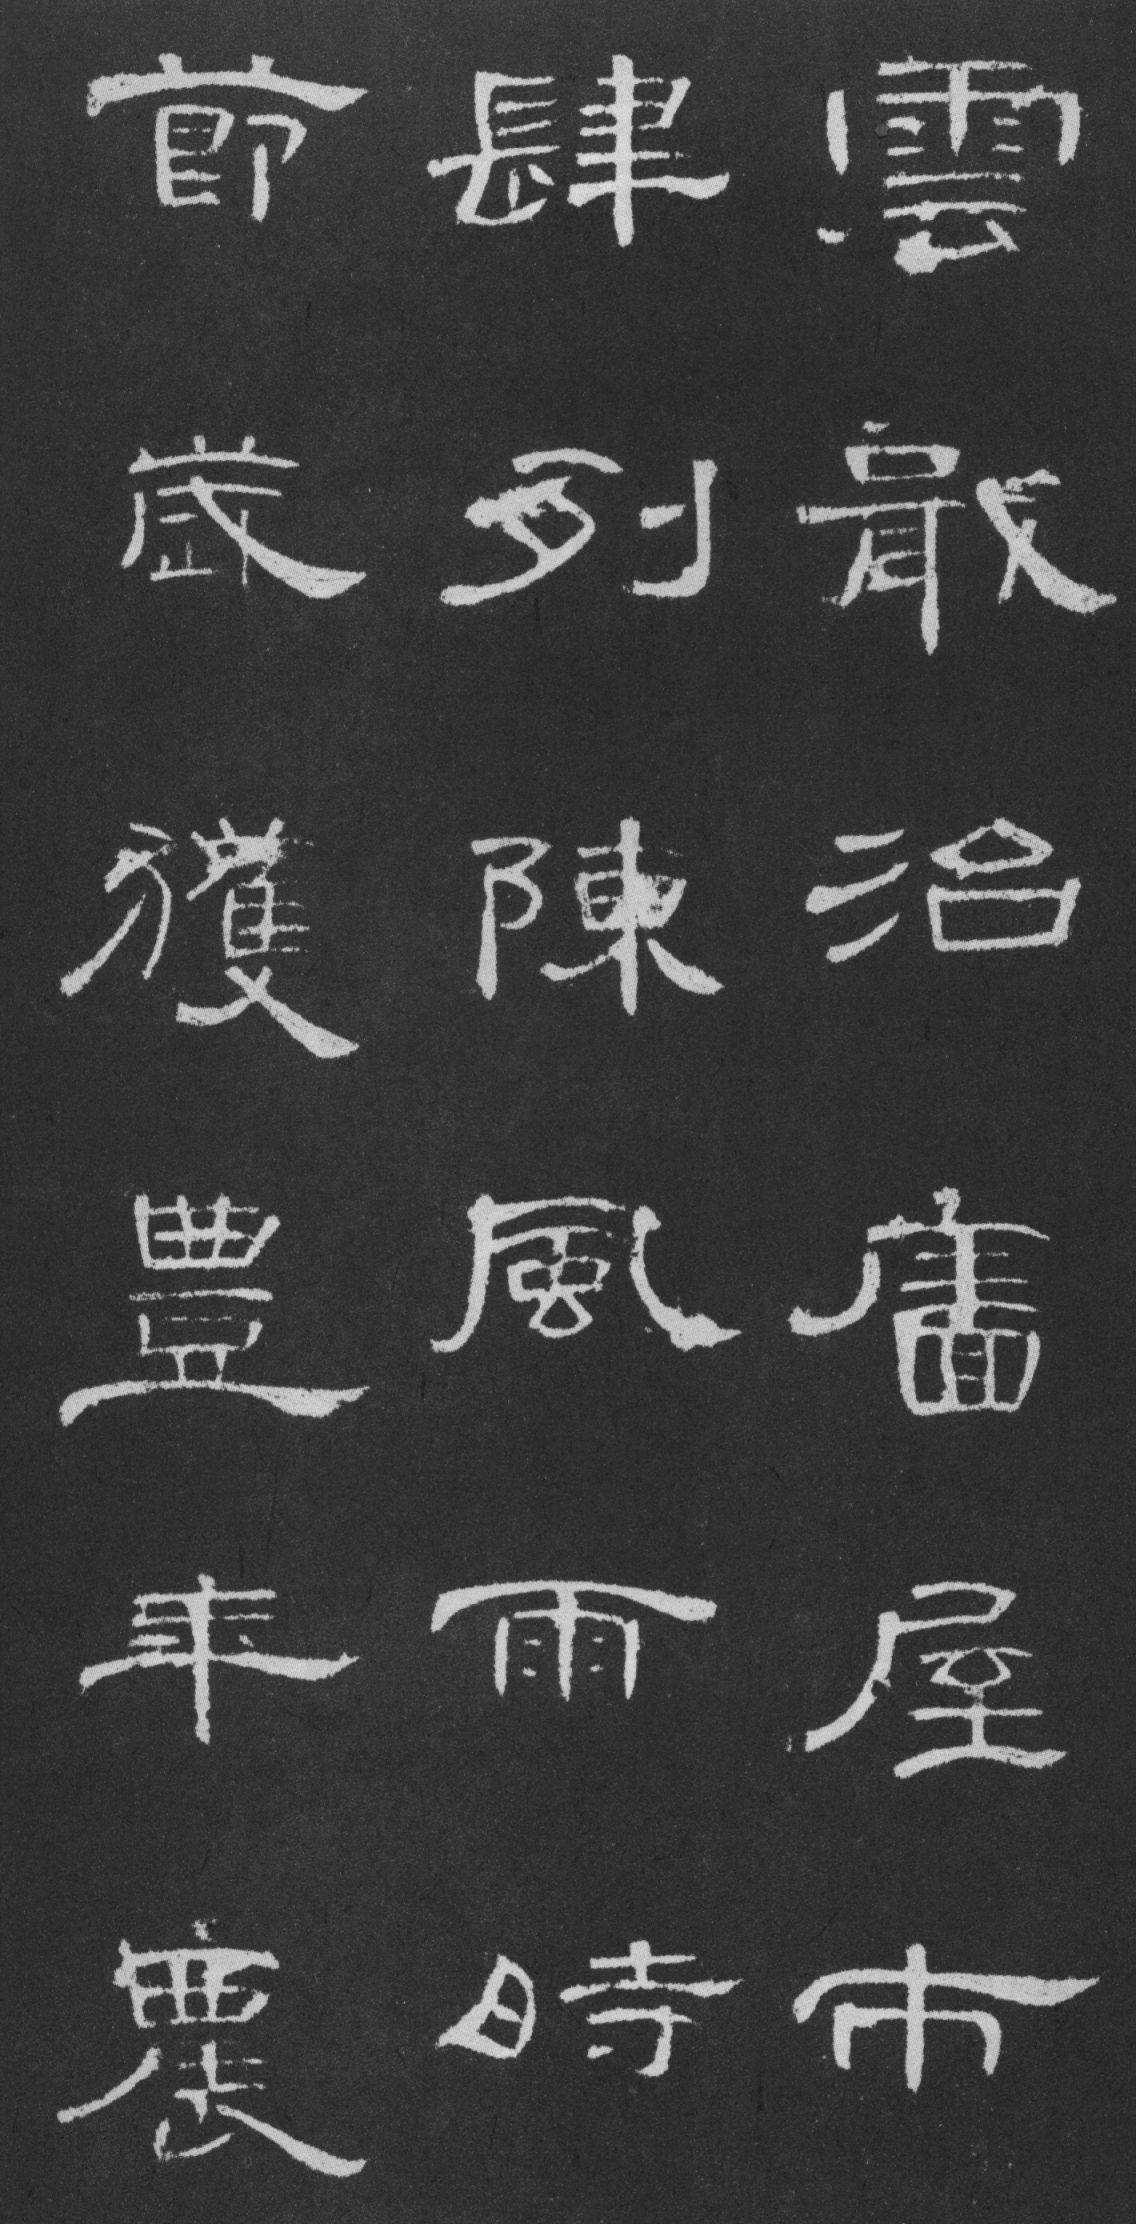 雲散治舊屋市
肆列陳風雨時
節歲獲豐年農